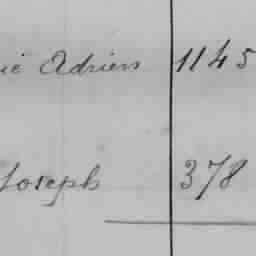 ie Adrien 1145
Joseph 378